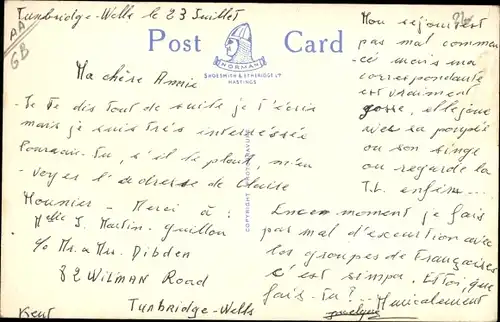 Tunbridge-Wells le 23 Juillet
AA
GB
Post Card
NORMAN
SHOESMITH & ETHERIDGE LTD
HASTINGS
COPYRIGHT PHOTOGRAVURE
Ma chère Annie
Je te dis tout de suite je t'écris
mais je suis très intéressée
Pourrais-tu, s'il te plaît, m'en
voyer l'adresse de Claire
Mounier - Merci à :
Melle J. Martin-Guillou
c/o Mr. a Mrs. Dibden
82 WILMAN ROAD
Tunbridge-Wells
Kent
Mon séjour est
pas mal commen
cé mais ma
correspondante
est vraiment
gosse, elle joue
avec sa poupée
ou son singe
ou regarde la
T.L. enfin ...
En ce moment je fais
pas mal d'excursion avec
les groupes de Françaises
c'est sympa. Et toi, que
fais-tu? ... Amicalement